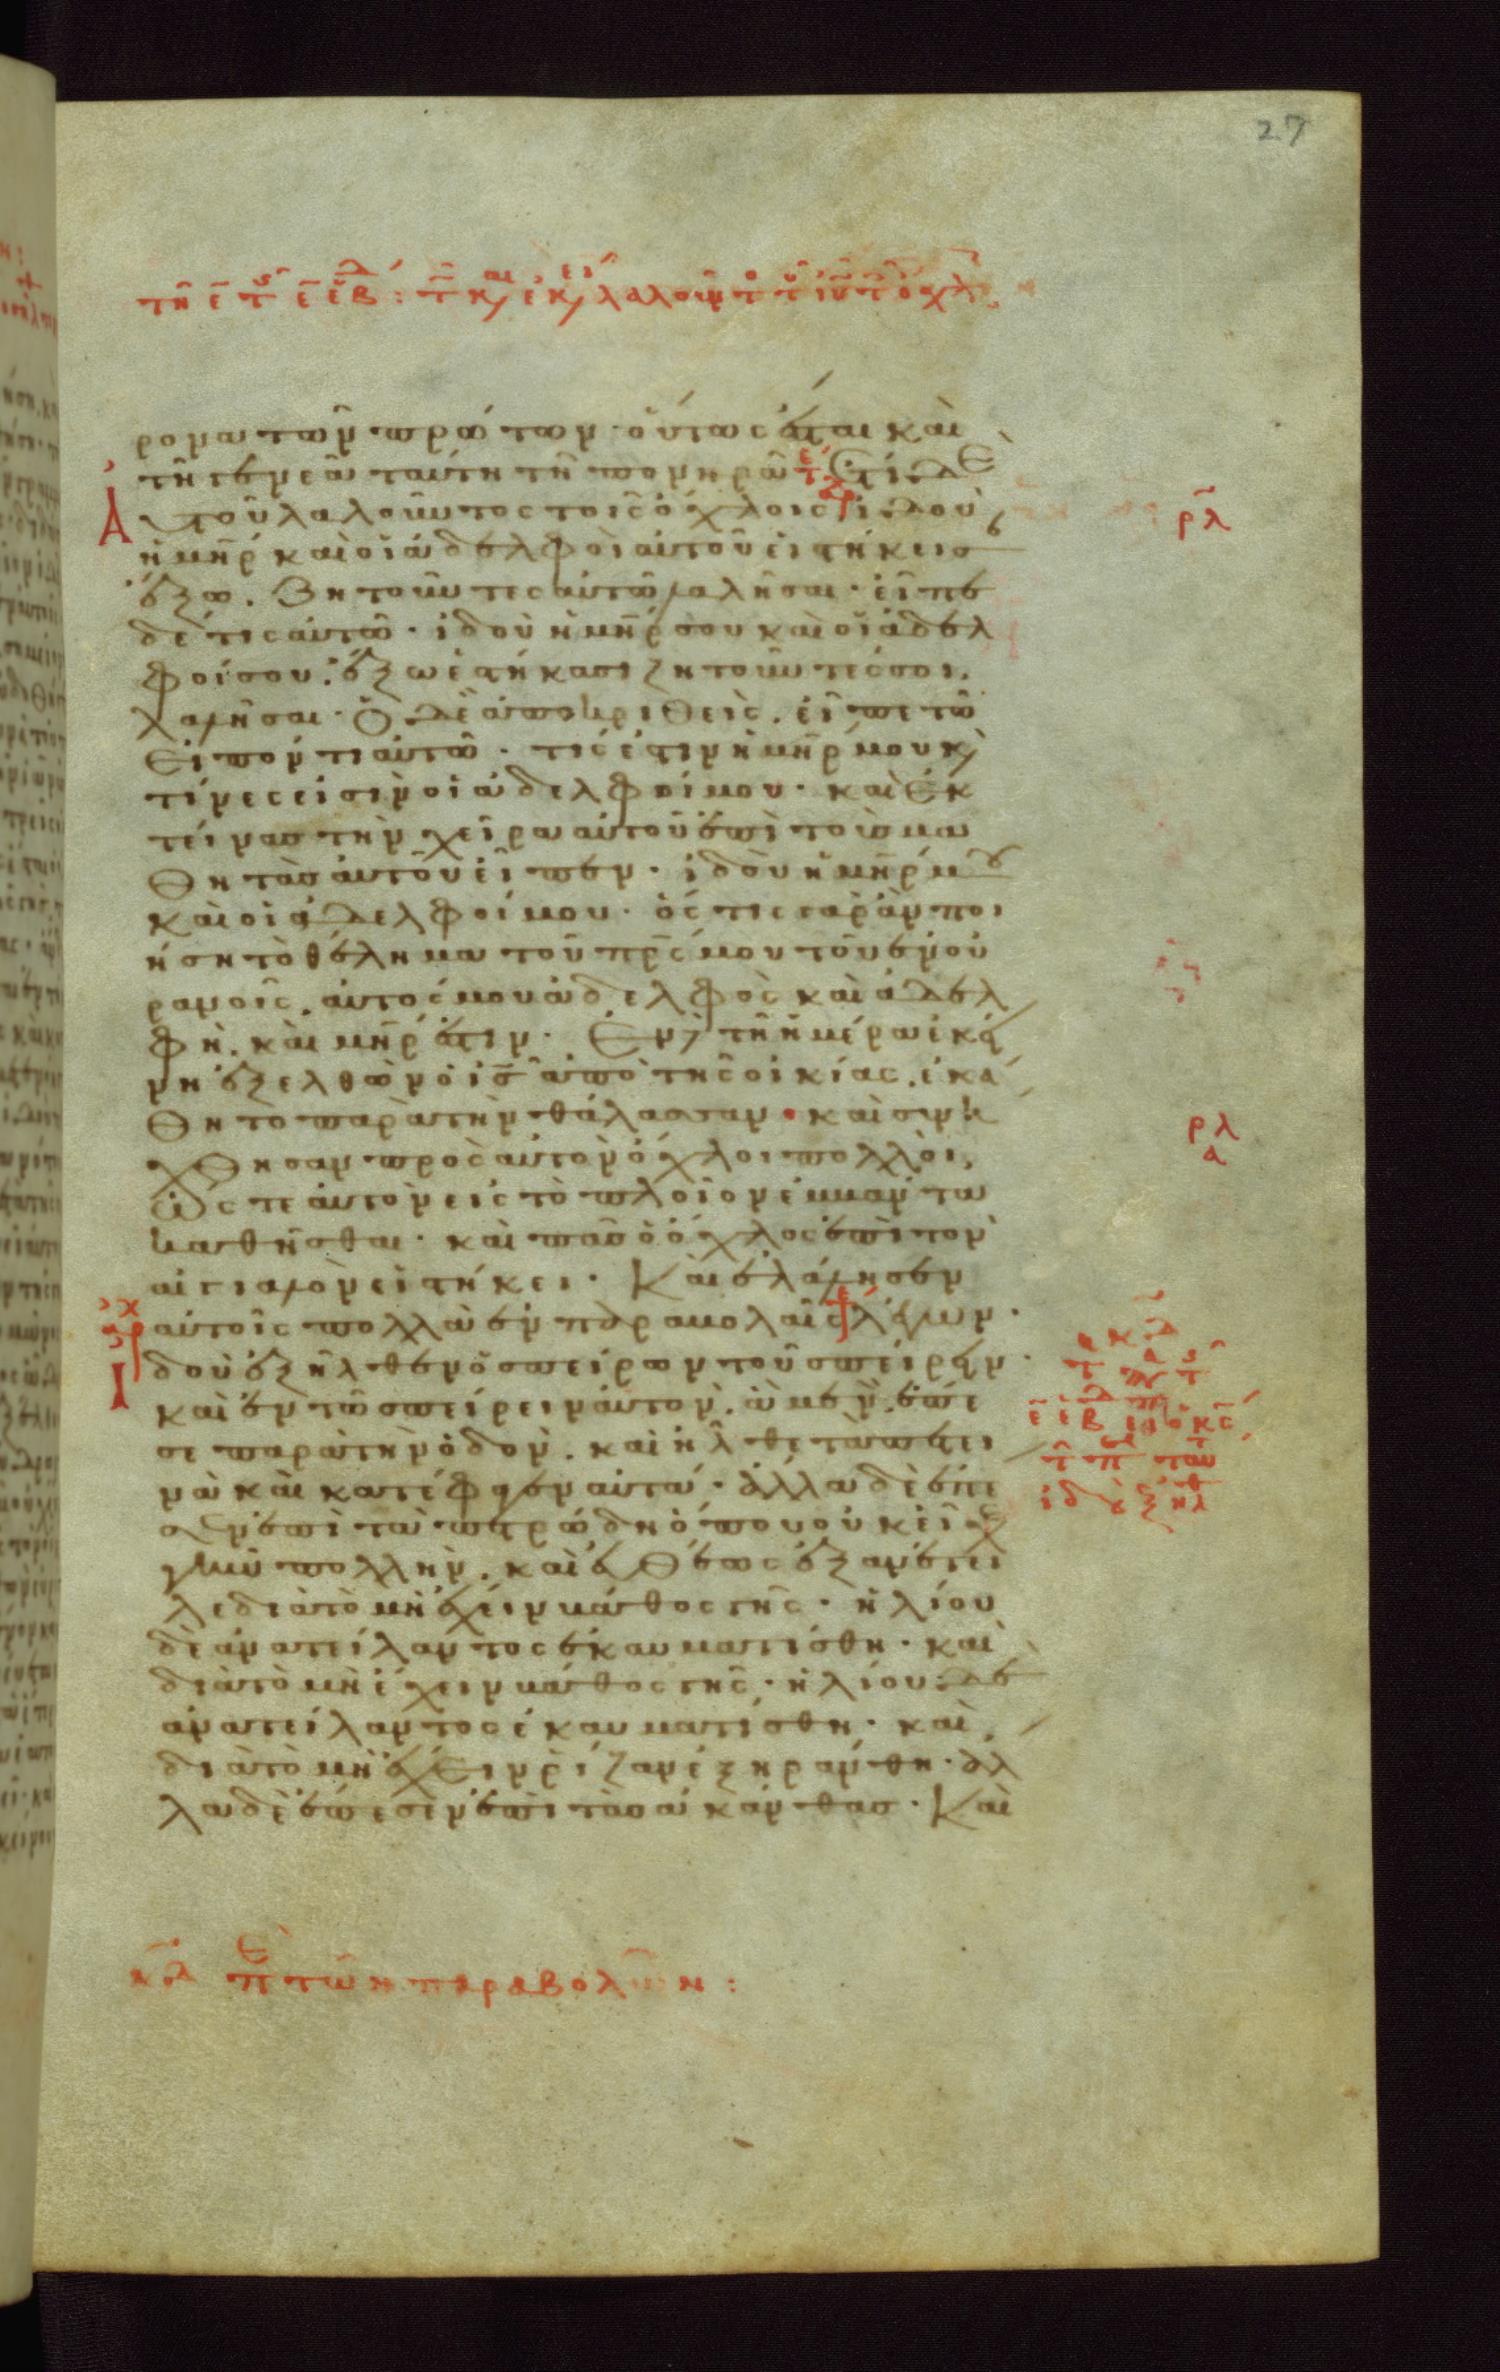 27
ρονα τῶν πρώτων· οὕτως ἔσται καὶ
τῆ γενεᾶ ταύτη τῆ πονηρᾶ Ἔτι δὲ
Α τοῦ λαλοῦντος τοῖς ὄχλοις ἰδοὺ
ρλ
ἡ μηρ καὶ οἱ ἀδελφοὶ αὐτοῦ εἱστήκεισ
ἔξω. Ζητοῦντες αὐτῶ λαλῆσαι· εἶπε
δέ τις αὐτῶ· ἰδοὺ ἡ μηρ σου καὶ οἱ ἀδελ
φοί σου· ἔξω ἑστήκασι ζητοῦντές σοι
λαλῆσαι· Ὁ δὲ ἀποκριθεὶς. εἶπε τῶ
εἰπόντι αὐτῶ· τίς ἐστιν ἡ μηρ μου κὶ
τίνες εἰσὶν οἱ ἀδελφοί μου· καὶ ἐκ
τείνας τὴν χεῖρα αὐτοῦ ἐπὶ τοὺς μα
θητὰς αὐτοῦ εἶπεν· ἰδοὺ ἡ μηρ μου
καὶ οἱ ἀδελφοί μου· ὅς τις γὰρ ἂν ποι
ήση τὸ θέλημα τοῦ πρς μου τοῦ ἐν οὐ
ρανοῖς. αὐτός μου ἀδελφὸς καὶ ἀδελ
φὴ. καὶ μηρ ἐστιν· Ἐν δὲ τῆ ἡμέρα ἐκεί
νη ἐξελθὼν ὁ ις ἀπὸ τῆς οἰκίας. ἐκά
θητο παρὰ τὴν θάλασσαν· καὶ συνή
ρλ
α
χθησαν πρὸς αὐτὸν ὄχλοι πολλοὶ,
ὥς τε αὐτὸν εἰς τὸ πλοῖον ἐμβάντα
καθῆσθαι· καὶ πᾶς ὁ ὄχλος ἐπὶ τὸν
αἰγιαλὸν εἱστήκει· Καὶ ἐλάλησεν
αὐτοῖς πολλὰ ἐν παραβολαῖς λέγων·
Ι δοὺ ἐξῆλθεν ὁ σπείρων τοῦ σπείρειν·
καὶ ἐν τῶ σπείρειν αὐτὸν. ἃ μὲν. ἔπε
σε παρὰ τὴν ὁδὸν. καὶ ἦλθε τὰ πετει
νὰ καὶ κατέφαγεν αὐτά· ἄλλα δὲ ἔπε
σεν ἐπὶ τὰ πετρώδη ὅπου οὐκ εἶχε
γῆν πολλὴν. καὶ εὐθέως ἐξανέτει
λε διὰ τὸ μὴ ἔχειν βάθος γῆς· ἡλίου
δὲ ἀνατείλαντος ἐκαυματίσθη· καὶ
διὰ τὸ μὴ ἔχειν βάθος γῆς· ἡλίου δὲ
ἀνατείλαντος ἐκαυματίσθη· καὶ
διὰ τὸ μὴ ἔχειν ῥίζαν ἐξηράνθη· ἄλ
λα δὲ ἔπεσεν ἐπὶ τὰς ἀκάνθας· Καὶ
κδ πε τῶν παραβολῶν: